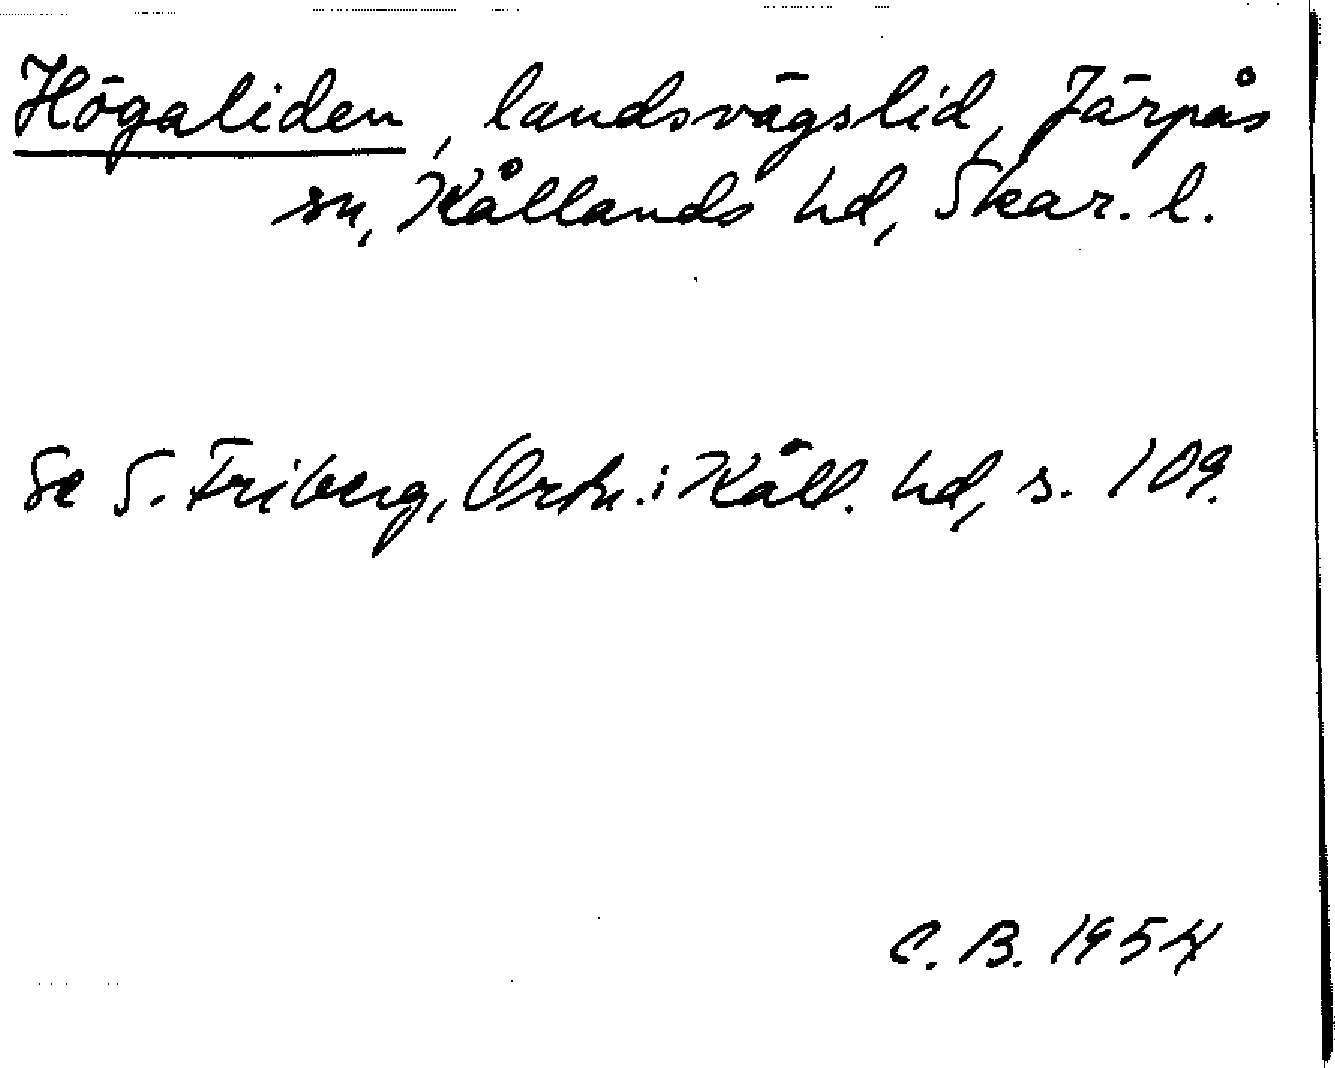 Högaliden, landsvägslid, Järpås
sn, Kållands hd, Skar. l.
Se S. Friberg, Ortn. i Kåll. hd, s. 109.
C. B. 1954